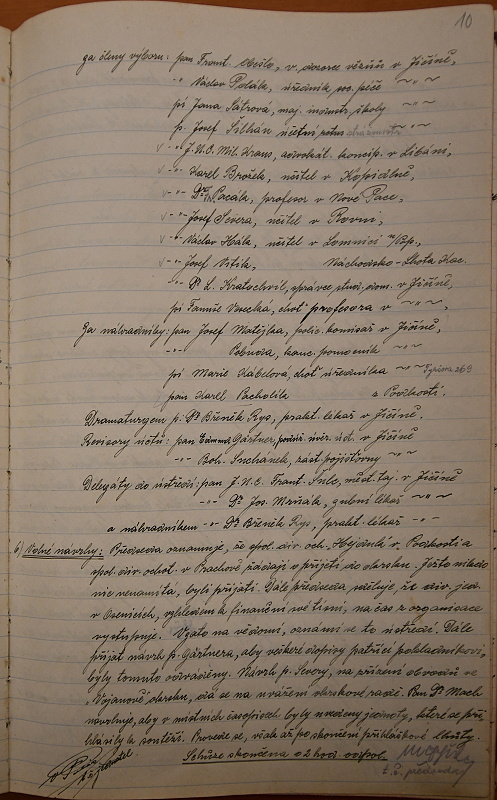 10
za členy výboru: pan Frant. v. dozorce vězňů v Jičíně,
-"- Václav Polák, úředník soc. péče ~"~
pí Jana Sátrová, maj. škol. ~"~
p. Josef účetní ~"~
-"- J.U.C. Mil. Kraus, advokát. koncip. v Libáni,
-"- Karel Brožek, učitel v Kopidlně,
-"- Dr. Pacák, profesor v Nové Pace,
-"- Josef Severa, učitel v Rovni,
-"- Václav Hála, učitel v Lomnici n/Pop.,
-"- Josef Vrtík, Náchodsko-Skalicko.
-"- Dr. L. Kratochvil, správce stud. dom. v Jičíně,
pí Fanuše choť profesora v ~"~,
Za náhradníky: pan Josef Matějka, polic. komisař v Jičíně,
-"- Pehnda, kanc. pomocník ~"~
pí Marie Kábelová, choť úředníka ~"~ 269
pan Karel Pacholík z Podhostí.
Dramaturgem p. Dr. Břeněk Rys, prakt. lékař v Jičíně.
Revisory účtů: pan Gärtner, úč. v Jičíně
-"- Boh. Suchánek, zást. pojišťovny ~"~
Delegáty do ústředí: pan J.U.C. Frant. měst. taj. v Jičíně
-"- Dr. Jos. Mrňák, zubní lékař ~"~
a náhradníkem -"- Dr. Břeněk Rys, prakt. lékař -"-
6) Volné návrhy: Předseda oznamuje, že spol. div. och. v Podhostí a
spol. div. ochot. v Prachově žádají o přijetí do okrsku. Ježto nikdo
nic nenamítá, byli přijati. Dále předseda sděluje, že div. jed.
v Osenicích, vzhledem k finanční své tísni, na čas z organisace
vystupuje. Vzato na vědomí, oznámí se to ústředí. Dále
přijat návrh p. Gärtnera, aby veškeré dopisy patřící pokladníkovi,
byly tomuto odváděny. Návrh p. Severy, na přízeni obvodů ve
Vojanově okrsku, dá se na uvážení okrskové radě. Pan Dr. Mach
navrhuje, aby v místních časopisech byly uvedeny jednoty, které se při-
hlásily k soutěži. Provede se, však až po skončení přihláškové lhůty.
Schůze skončena o 2 hod. odpol.
t. č. předseda
jednatel